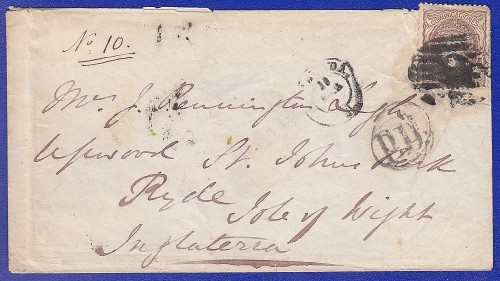 No 10.
Mrs J. Pennington Legh
Upwood St. Johns Park
Ryde Isle of Wight
Inglaterra
P.D.